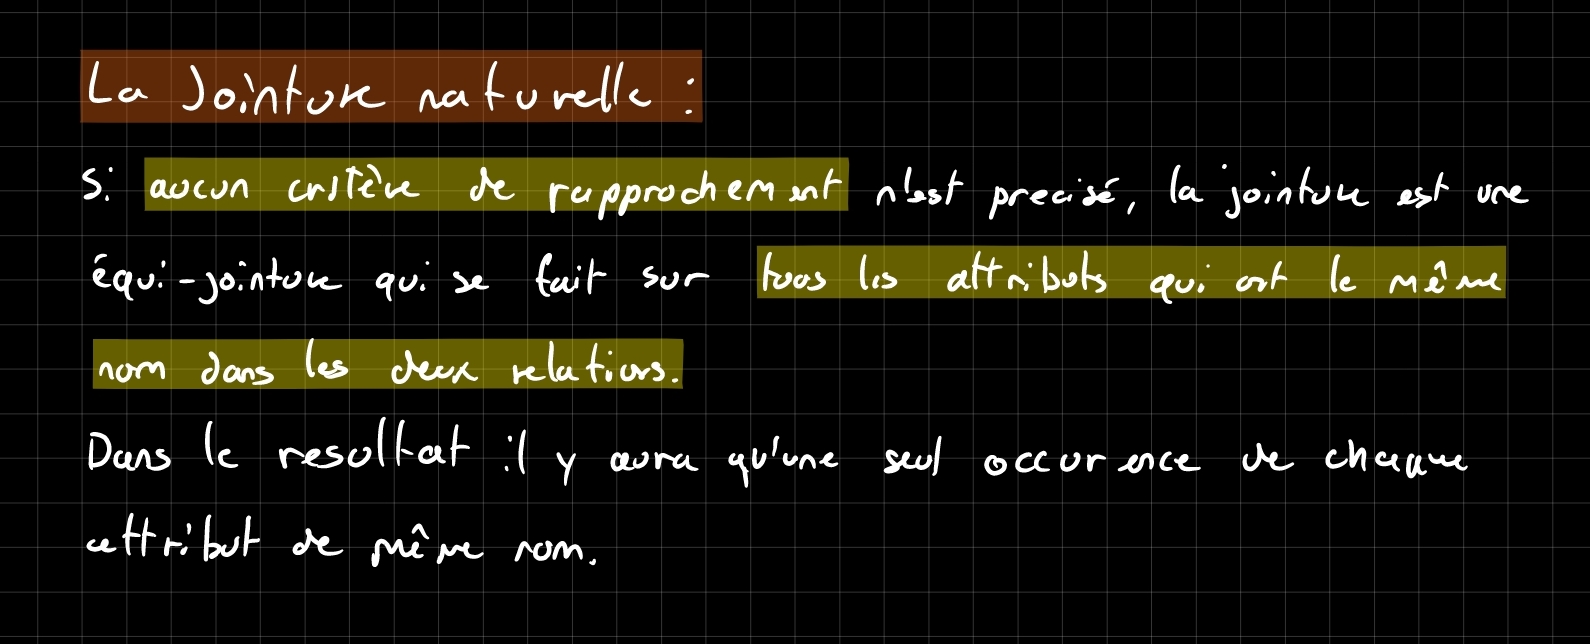 La Jointure naturelle :
Si aucun critère de rapprochement n'est precisé, la jointure est une
équi-jointure qui se fait sur tous les attributs qui ont le même
nom dans les deux relations.
Dans le resultat il y aura qu'une seul occurence de chaque
attribut de même nom.